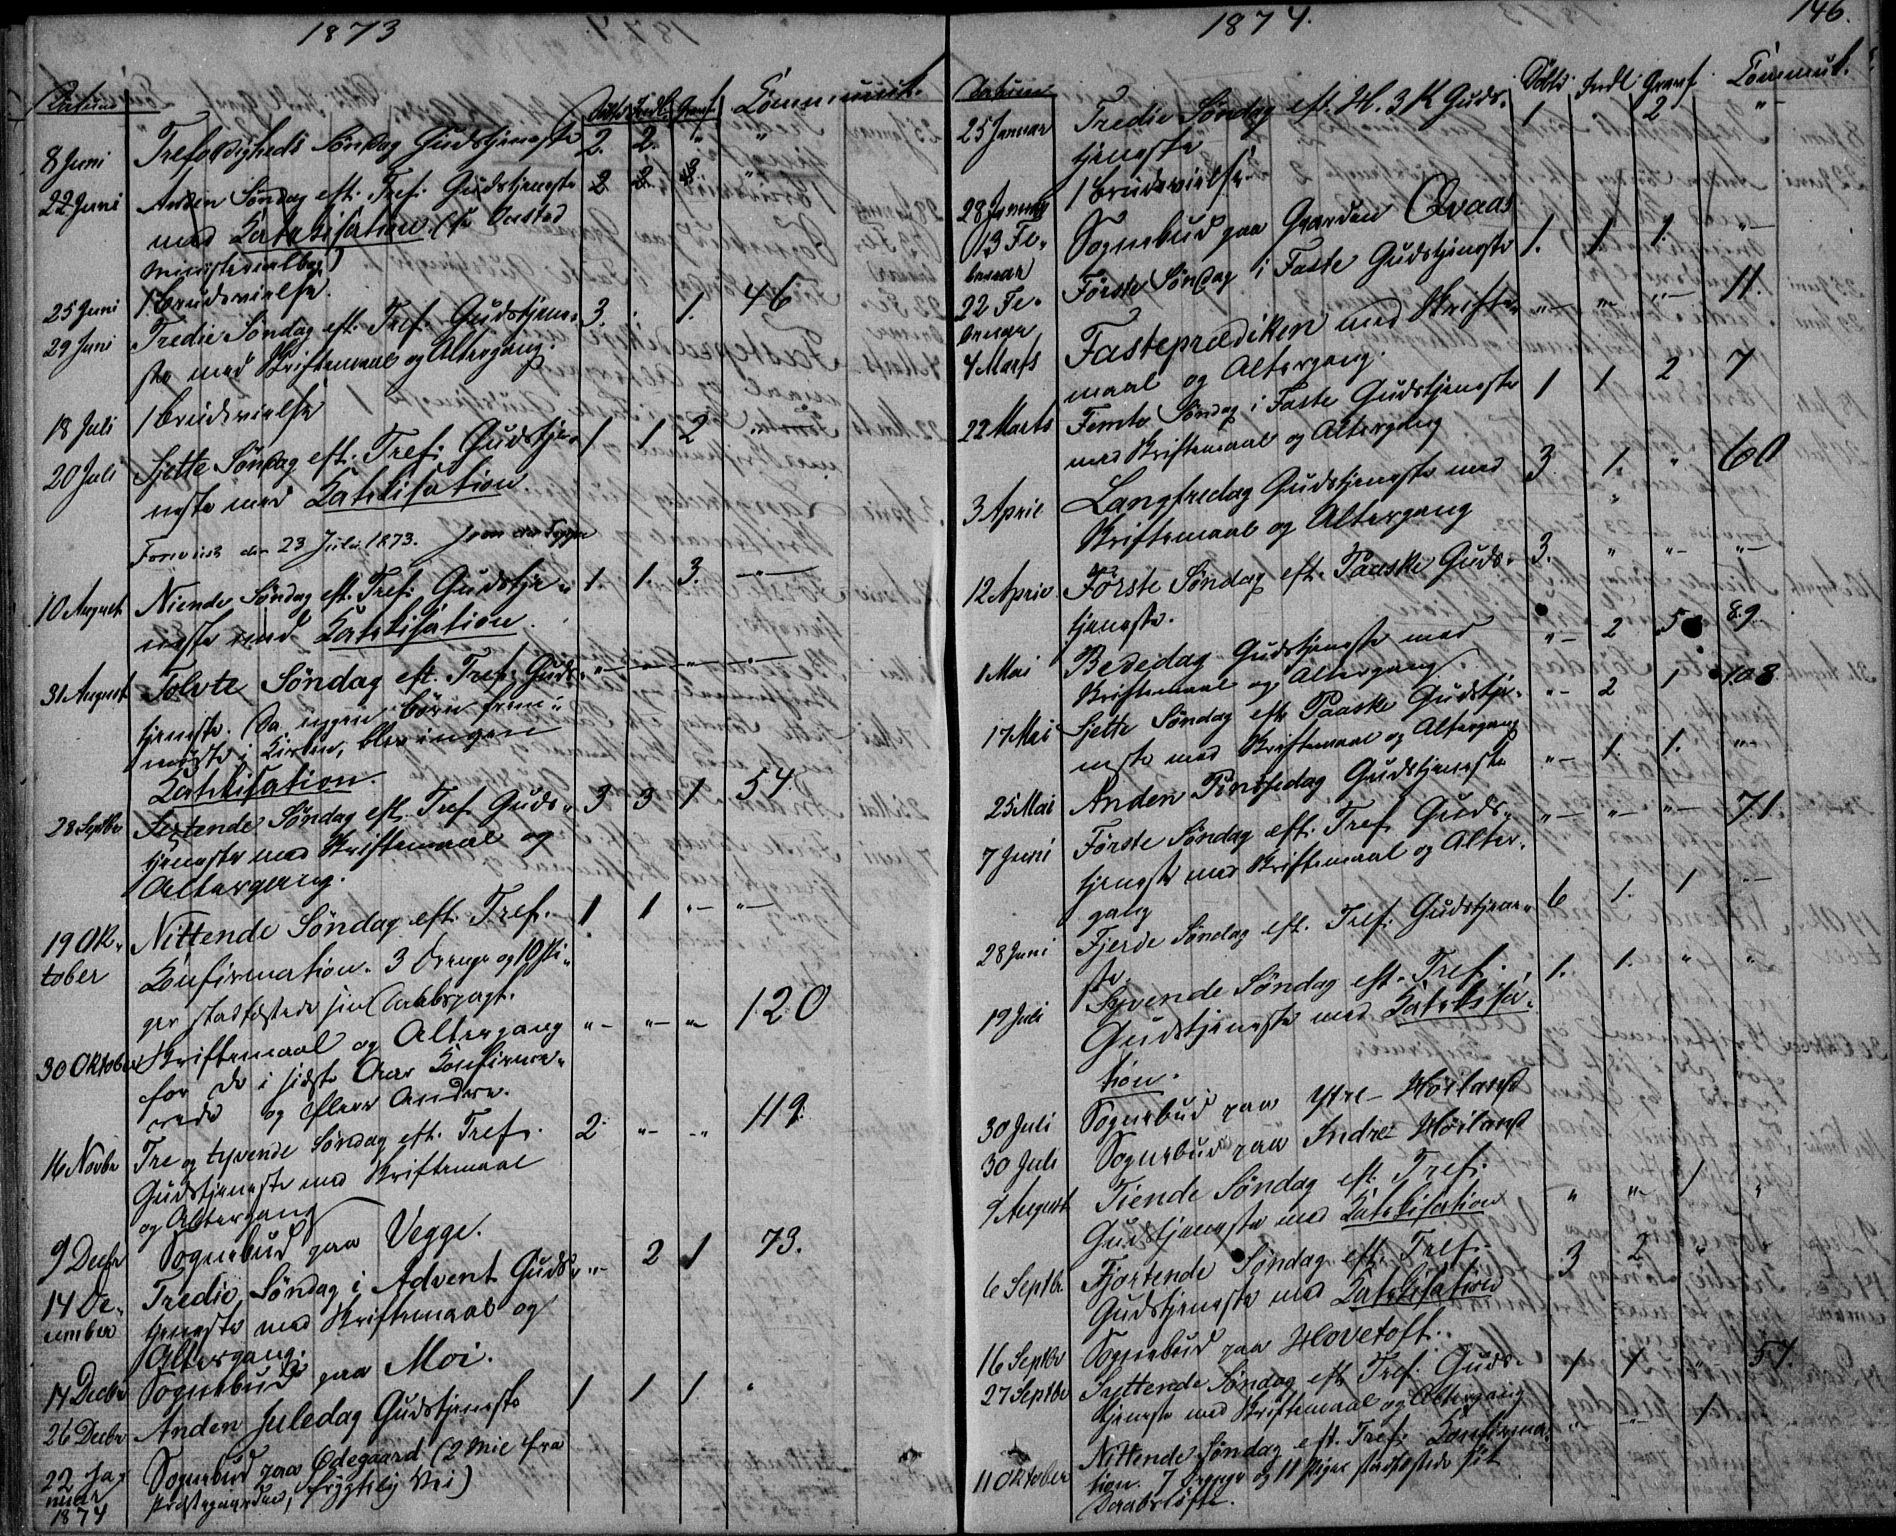 1873
Datum Döbte Indl. Graves. Communik.
8 Juni Trefoldigheds Söndag Gudstjeneste 2. 2. " "
22 Juni Anden Söndag eft. Tref. Gudstjeneste 2 2 3 "
med Katekisation.
ministerialbog)
25 Juni 1 Brudevielse.
29 Juni Tredie Söndag eft. Tref. Gudstjene- 3. . 1. 46
ste med Skriftemaal og Altergang.
18 Juli 1 Brudevielse
20 Juli Sjette Söndag eft. Tref. Gudstje- 1 1 2 "
neste med Katekisation.
den 23 Juli 1873.
10 August Niende Söndag eft. Tref. Gudstje- 1. 1. 3. "
neste med Katekisation.
31 August Tolvte Söndag eft. Tref. Guds- " " " "
tjeneste. (Da ingen börn frem-
mödte i Kirken, blev ingen
Katekisation.
28 Septbr Sextende Söndag eft. Tref. Guds- 3 3 1 54
tjeneste med Skriftemaal og
Altergang.
19 Ok- Nittende Söndag eft. Tref. 1 1 " "
tober Konfirmation. 3 Drenge og 10 Pi-
ger stadfæstede sin Daabspagt.
30 Oktober Skriftemaal og Altergang " " " 120
for de i sidste Aar Konfirme-
rede og flere Andre.
16 Novbr Tre og tyvende Söndag eft. Tref. 2 " " 119
Gudstjeneste med Skriftemaal
og Altergang
9 Decbr Sognebud paa Vegge.
14 De- Tredie Söndag i Advent Guds- " 2 1 73.
cember tjeneste med Skriftemaal og
Altergang.
17 Decbr Sognebud paa Moi.
26 Decbr Anden Juledag Gudstjeneste 1 1 1 "
22 Ja- Sognebud paa Ödegaard (2 Mil fra
nuar Præstegaarden, frygtelig Vei)
1874
1874. 146.
Datum Döbte Indl Graves Commun.
25 Januar Tredie Söndag eft. H. 3 K Guds- 1 2 "
tjeneste
28 Januar 1 Brudevielse
13 Fe- Sognebud paa Gaarden Qvaas
bruar
22 Fe- Første Söndag i Faste Gudstjeneste 1. 1 1. "
bruar
4 Marts Fasteprædiken med Skrifte- " " " 11.
maal og Altergang.
22 Marts Femte Söndag i Faste Gudstjeneste 1 1 2 7
med Skriftemaal og Altergang
3 April Langfredag Gudstjeneste med 3 1. " 60
Skriftemaal og Altergang
12 April Første Söndag eft. Paaske Guds- 3. " " "
tjeneste.
1 Mai Bededag Gudstjeneste med " 2 5 89
Skriftemaal og Altergang
17 Mai Sjette Söndag eft Paaske Gudstje- " 2 1 108
neste med Skriftemaal og Altergang
25 Mai Anden Pintsedag Gudstjeneste " 1. 1. "
7 Juni Første Söndag eft. Tref. Guds- " " " 71.
tjeneste med Skriftemaal og Alter-
gang
28 Juni Fjerde Söndag eft. Tref. Gudstjene- 6 1. 1 "
ste
19 Juli Syvende Söndag eft. Tref. 1. 1. " "
Gudstjeneste med Katekisa-
tion.
30 Juli Sognebud paa Ytre-Höiland
30 Juli Sognebud paa Indre Höiland
9 August Tiende Söndag eft. Tref. " " 1 "
Gudstjeneste med Katekisation
6 Septbr. Fjortende Söndag eft. Tref. 3 2 " "
Gudstjeneste med Katekisation
16 Septbr Sognebud paa Hovetoft.
27 Septbr Syttende Söndag eft Tref. Guds- 1 1 " 57.
tjeneste med Skriftemaal og Altergang
11 Oktober Nittende Söndag eft. Tref. Konfirma- " " 1
tion. 7 Drenge og 11 Piger stadfæstede sit
Daabslöfte.